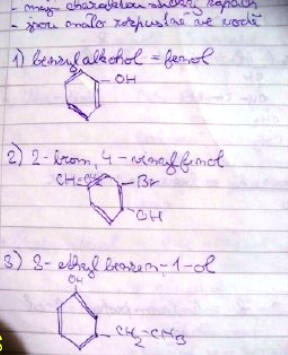 - mají charakteristický zápach
- jsou málo rozpustné ve vodě
1) benzylalkohol = fenol
- OH
2) 2-brom, 4-vinylfenol
CH=CH₂ - Br
- OH
3) 3-ethylbenzen-1-ol
OH
- CH₂-CH3